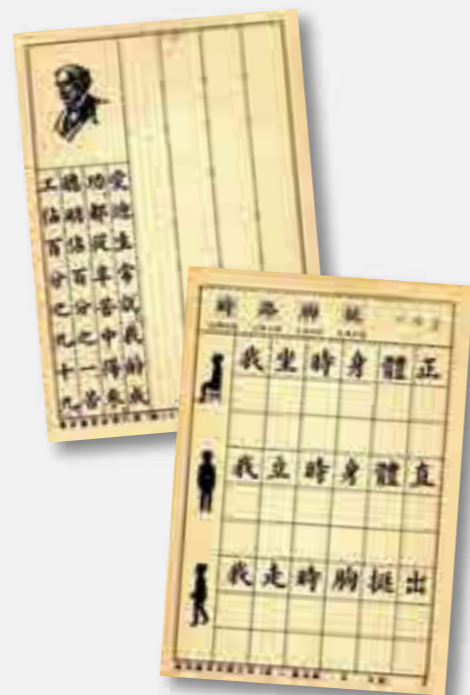 愛迪生常說我的成
功都從辛苦中得來
聰明佔百分之一苦
工佔百分之九十九
時 路
我坐時身體正
我立時身體直
我走時胸挺出